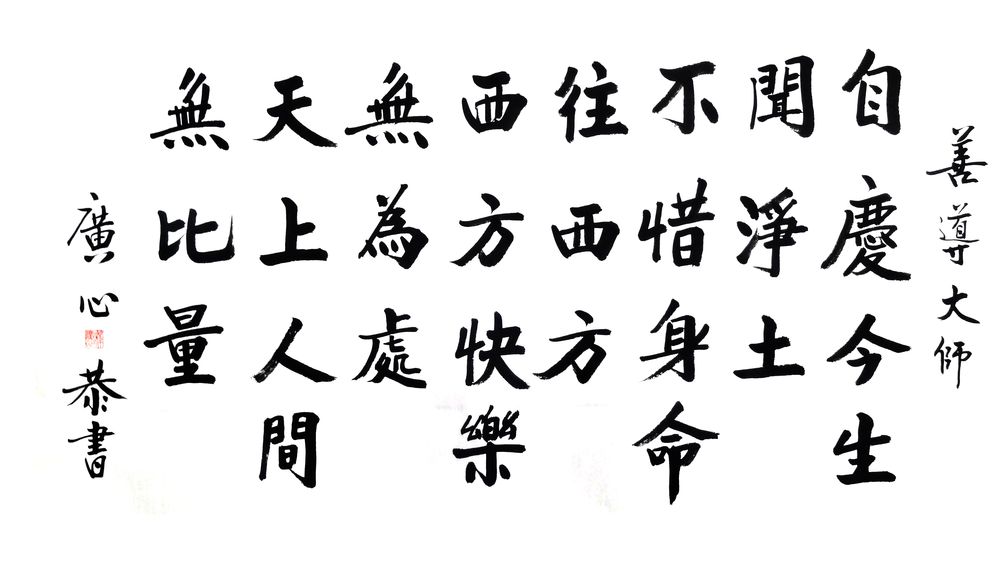 善導大師
自慶今生
聞淨土
不惜身命
往西方
西方快樂
無為處
天上人間
無比量
廣心恭書